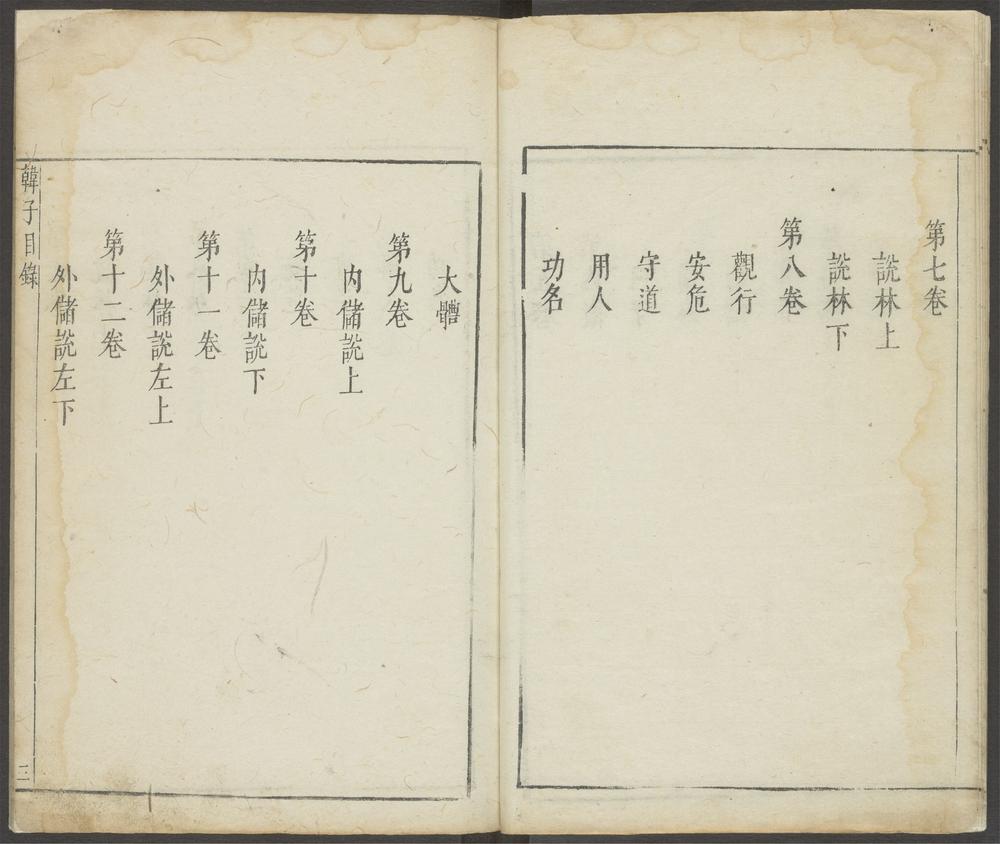 第七卷
說林上
說林下
第八卷
觀行
安危
守道
用人
功名
大體
第九卷
內儲說上
第十卷
內儲說下
第十一卷
外儲說左上
第十二卷
外儲說左下
韓子目錄
三